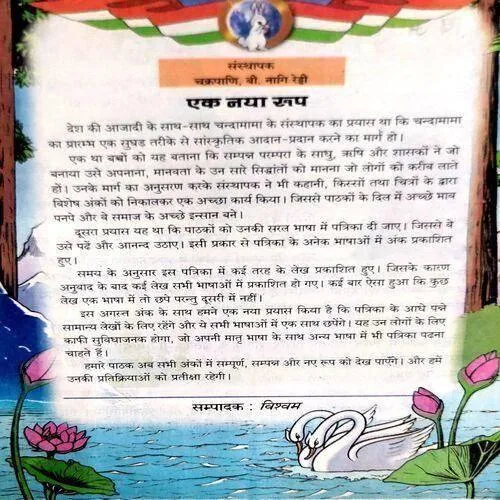 संस्थापक
चक्रपाणि, बी. नागि रेड्डी
एक नया रूप
देश की आजादी के साथ-साथ चन्दामामा के संस्थापक का प्रयास था कि चन्दामामा
का प्रारम्भ एक सुघड़ तरीके से सांस्कृतिक आदान-प्रदान करने का मार्ग हो।
एक था बच्चों को यह बताना कि सम्पन्न परम्परा के साधु, ऋषि और शासकों ने जो
बनाया उसे अपनाना, मानवता के उन सारे सिद्धांतों को मानना जो लोगों को करीब लाते
हों। उनके मार्ग का अनुसरण करके संस्थापक ने भी कहानी, किस्सों तथा चित्रों के द्वारा
विशेष अंकों को निकालकर एक अच्छा कार्य किया। जिससे पाठकों के दिल में अच्छे भाव
पनपे और वे समाज के अच्छे इन्सान बने।
दूसरा प्रयास यह था कि पाठकों को उनकी सरल भाषा में पत्रिका दी जाए। जिससे वे
उसे पढें और आनन्द उठाए। इसी प्रकार से पत्रिका के अनेक भाषाओं में अंक प्रकाशित
हुए।
समय के अनुसार इस पत्रिका में कई तरह के लेख प्रकाशित हुए। जिसके कारण
अनुवाद के बाद कई लेख सभी भाषाओं में प्रकाशित हो गए। कई बार ऐसा हुआ कि कुछ
लेख एक भाषा में तो छपे परन्तु दूसरी में नहीं।
इस अगस्त अंक के साथ हमने एक नया प्रयास किया है कि पत्रिका के आधे पन्ने
सामान्य लेखों के लिए रहेंगे और ये सभी भाषाओं में एक साथ छपेंगे। यह उन लोगों के लिए
काफी सुविधाजनक होगा, जो अपनी मातृ भाषा के साथ अन्य भाषा में भी पत्रिका पढना
चाहते हैं।
हमारे पाठक अब सभी अंकों में सम्पूर्ण, सम्पन्न और नए रूप को देख पाएँगे। और हमें
उनकी प्रतिक्रियाओं को प्रतीक्षा रहेगी।
सम्पादक : विश्वम